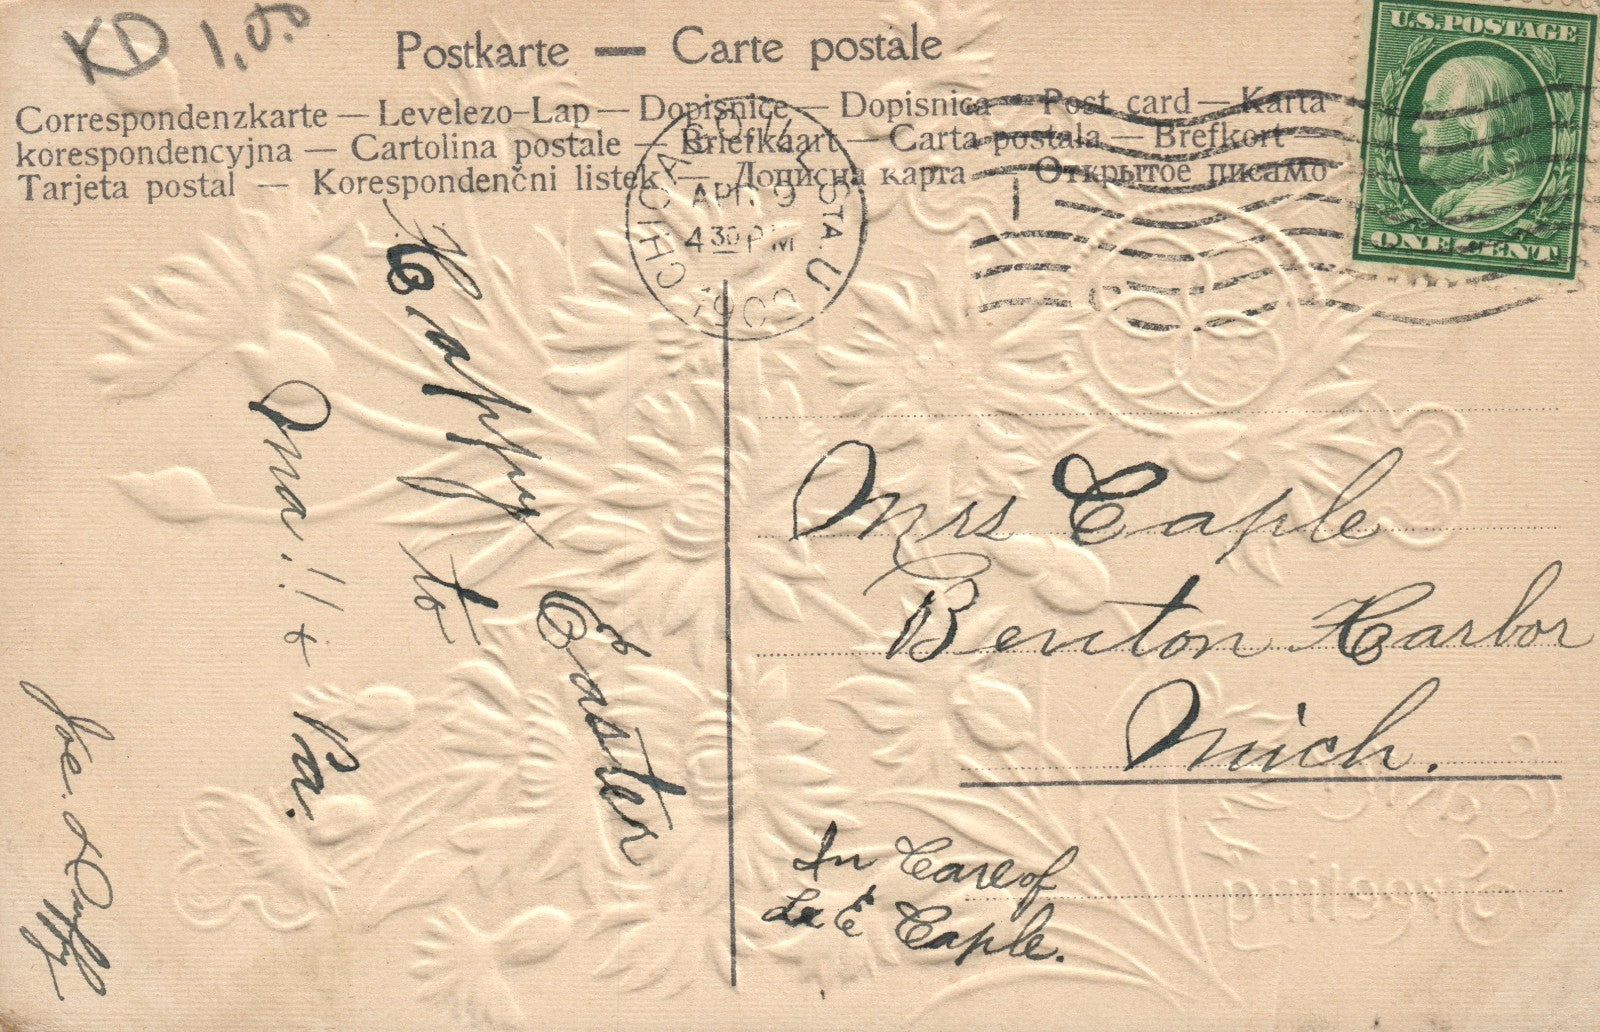 KD 1.00
Postkarte — Carte postale
Correspondenzkarte — Levelezo-Lap — Dopisnice — Dopisnica — Post card — Karta
korespondencyjna — Cartolina postale — Briefkaart — Carta postala — Brefkort —
Tarjeta postal — Korespondenčni listek — Дописна карта — Открытое писамо
U.S. POSTAGE
ONE CENT
CHICAGO, ILL. STA. U
APR 9
4 30 PM
1909
Happy Easter
to
Ma.!! & Pa.
Joe. &
Mrs Eaple
Benton Harbor
Mich.
In Care of
Eaple.
Easter
Greeting